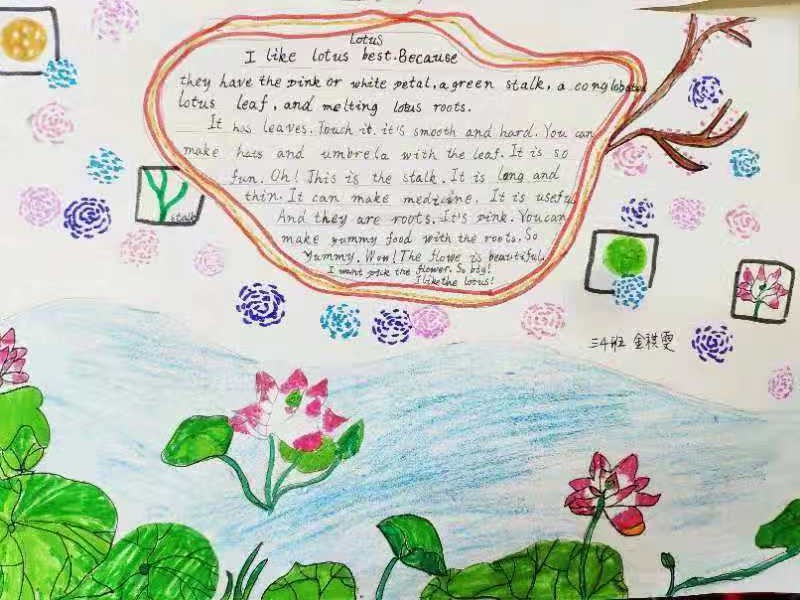 Lotus
I like lotus best. Because
they have the pink or white petal, a green stalk, a conglobated
lotus leaf, and melting lotus roots.
It has leaves. Touch it, it's smooth and hard. You can
make hats and umbrela with the leaf. It is so
fun. Oh! This is the stalk. It is long and
thin. It can make medicine. It is useful.
And they are roots. It's pink. You can
make yummy food with the roots. So
Yummy. Wow! The flowe is beautiful.
I want pick the flower. So big!
I like the lotus!
stalk
三4班 金祺雯